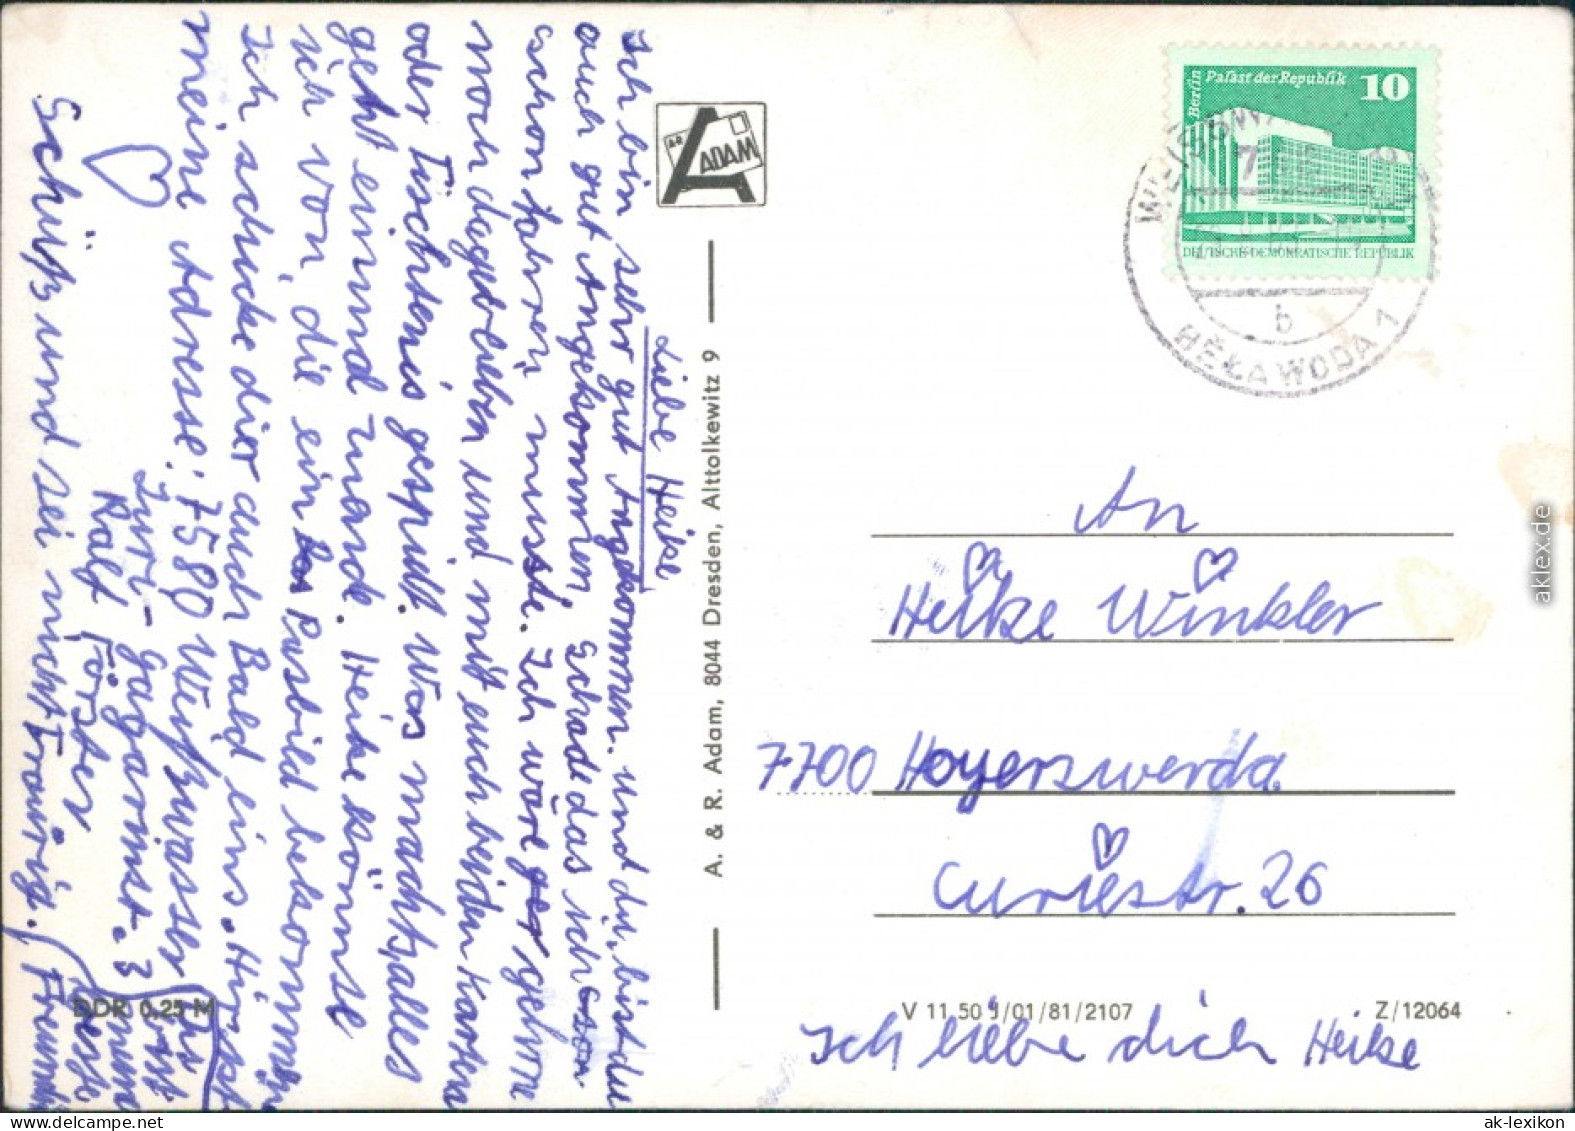 Liebe Heike
Ich bin sehr gut Angekommen. Und du, bist du
auch gut Angekommen. Schade das ich
schon fahren musste. Ich wäre gerne
noch dageblieben und mit euch beiden Karten
oder Tischtenis gespielt. Was macht alles
geht eimmd Hand. Heike könnte
ich von die ein Pasbild bekommen
Ich schicke dier auch Bald eins.
meine Adresse: 7580 Weißwasser
Juri-Gagarinst. 3
Ralf Förster
Schüß und sei nicht Traurig.
ADAM
A. & R. Adam, 8044 Dresden, Alttolkewitz 9
DDR 0,25 M
Berlin
Palast der Republik
10
DEUTSCHE DEMOKRATISCHE REPUBLIK
b
BĚŁA WODA 1
An
Heike Winkler
7700 Hoyerswerda
Curiestr. 26
V 11 50 J/01/81/2107
Z/12064
Ich liebe dich Heike
aklex.de
ak-lexikon